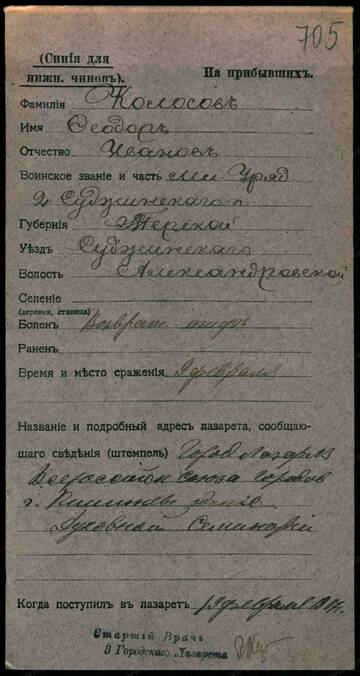 705
(Синія для
нижн. чиновъ).
На прибывшихъ.
Фамилія Колосовъ
Имя Ѳеодоръ
Отчество Ивановъ
Воинское званіе и часть мл. Уряд.
2 Сунженского п.
Губернія Терской
Уѣздъ Сунженскаго
Волость Александровской
Селеніе
(деревня, станица)
Боленъ Возврат. тифъ
Раненъ
Время и мѣсто сраженія 9 февраля
Названіе и подробный адресъ лазарета, сообщаю-
щаго свѣдѣнія (штемпель) Город. Лазар. №3
Всероссійск союза городов
г. Кишиневъ зданіе
Духовной Семинаріи
Когда поступилъ въ лазаретъ 19 февраля
Старшій Врачъ
3 Городскаго Лазарета